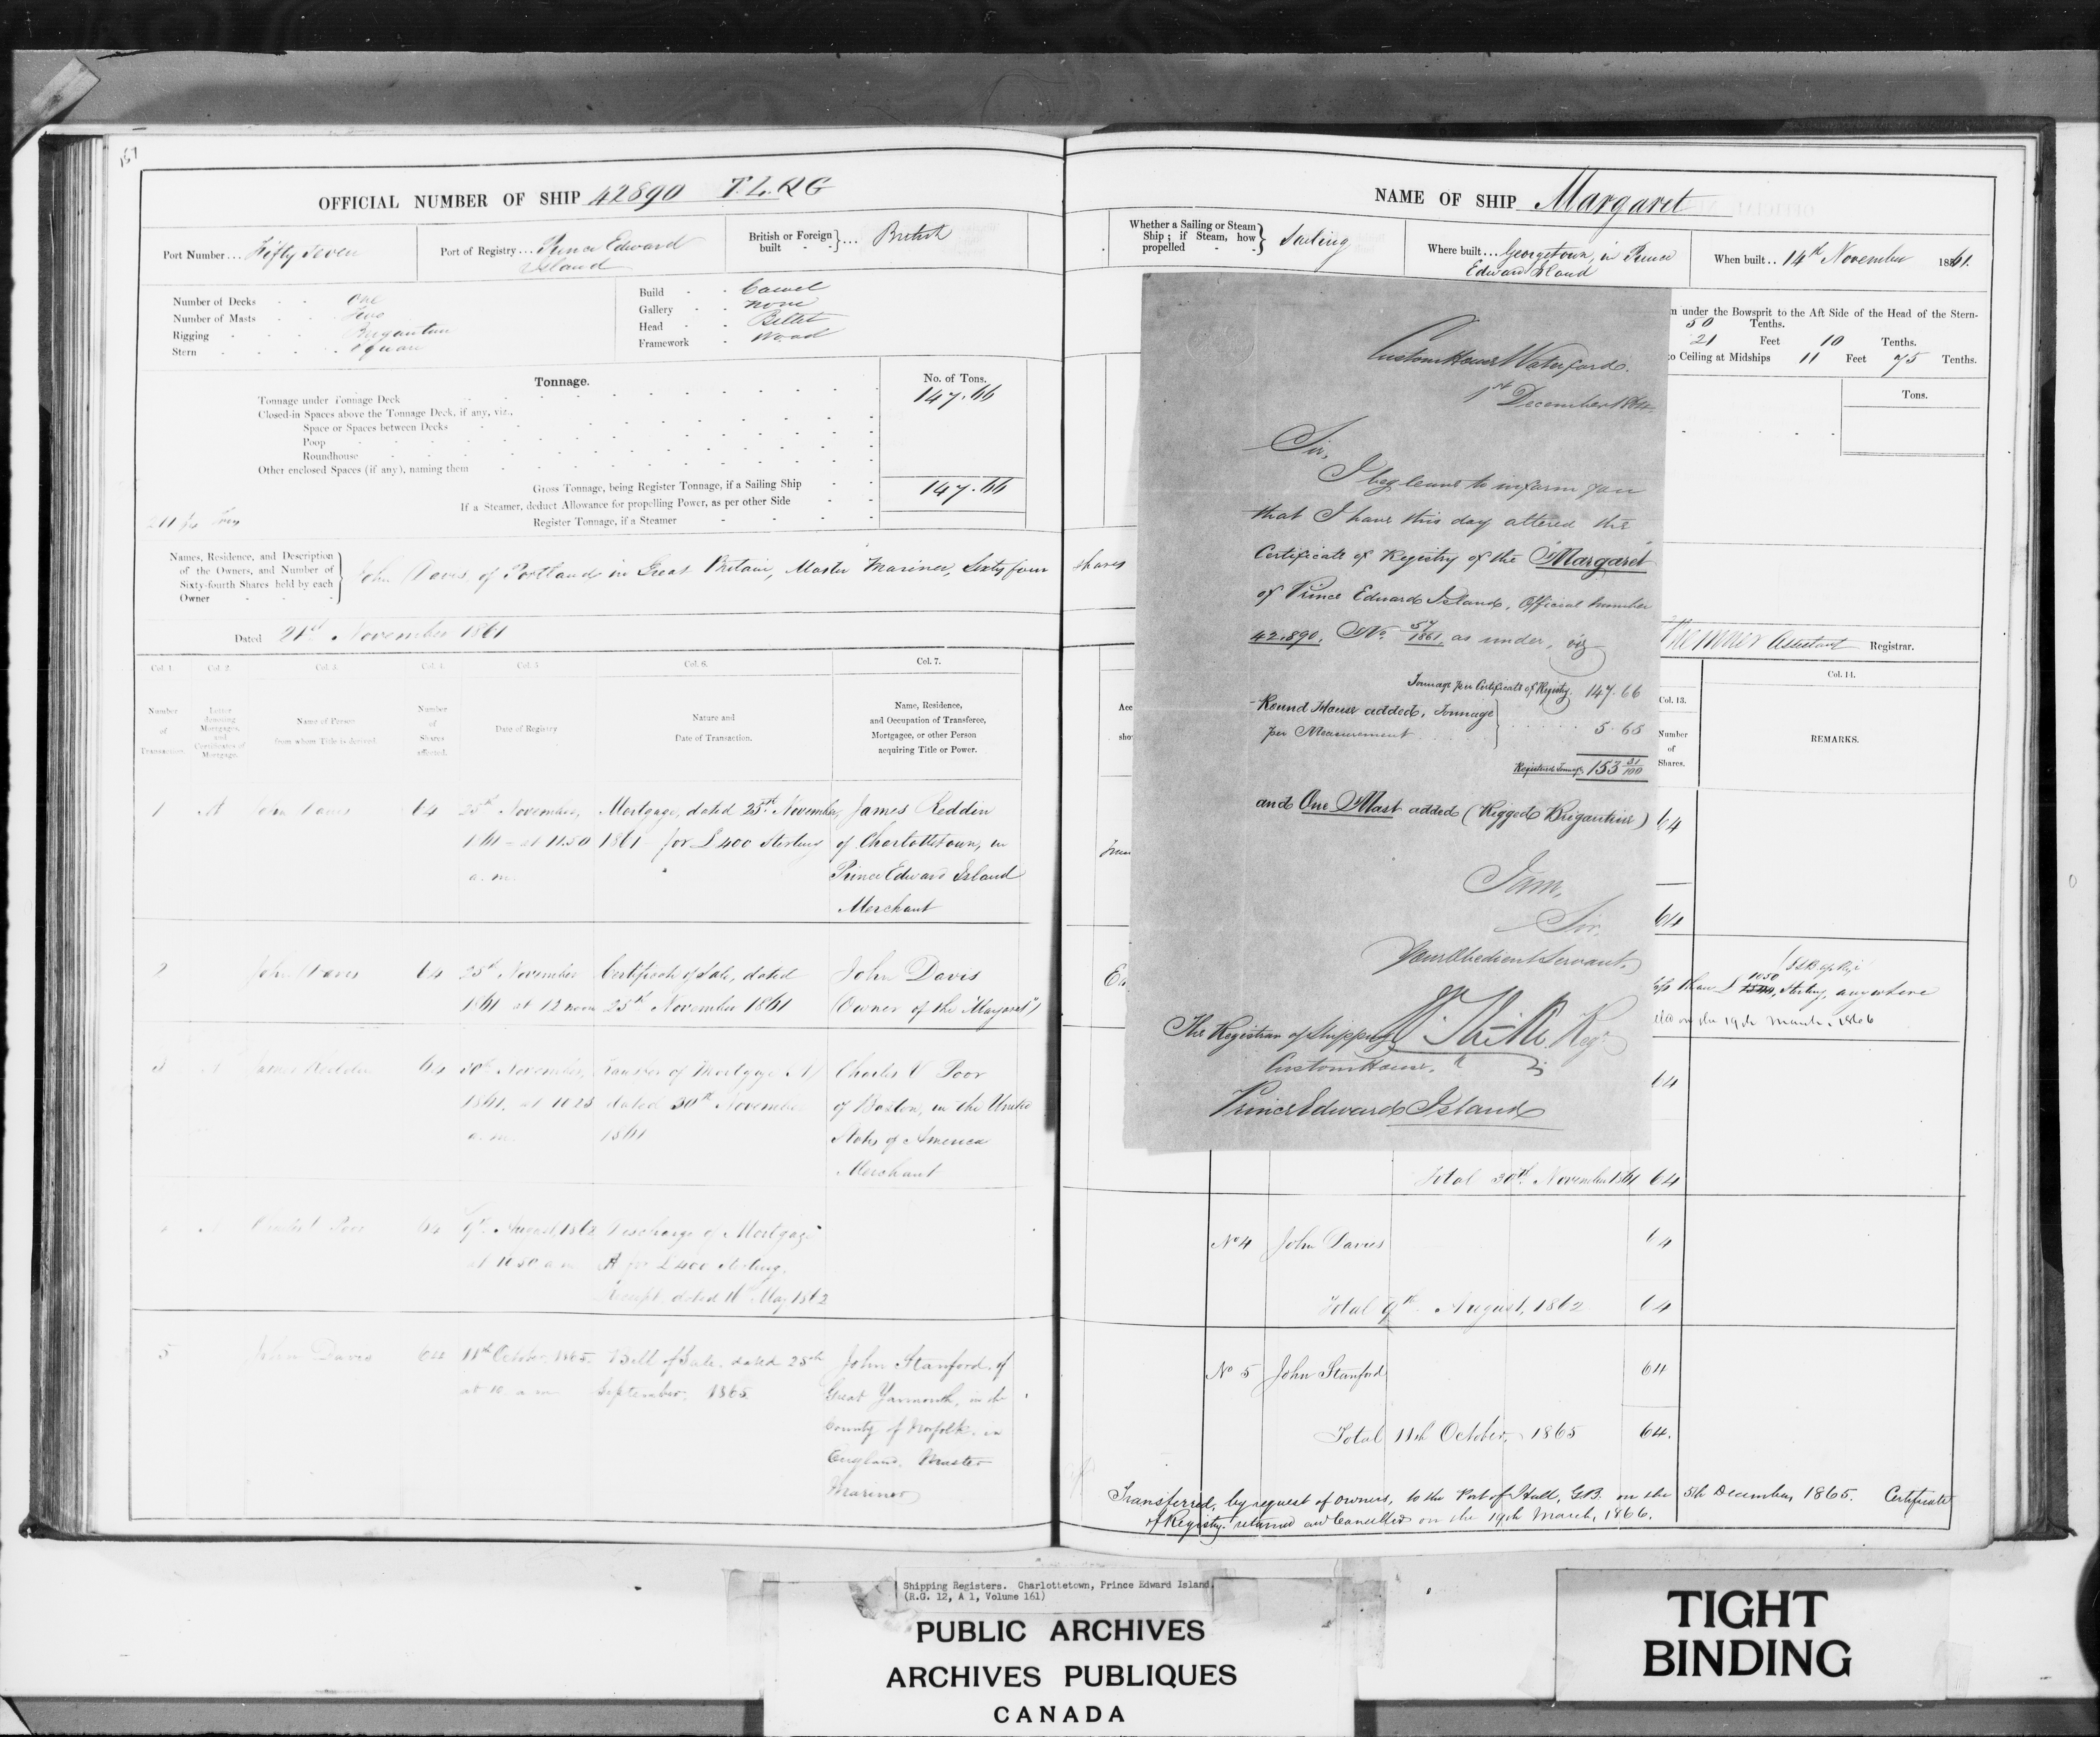 157
OFFICIAL NUMBER OF SHIP 42890 T.L.Q.G
Port Number... Fifty Seven
Port of Registry... Prince Edward
Island
British or Foreign
built - - } ... British
Number of Decks - - One
Number of Masts - - Two
Rigging - - - Brigantine
Stern - - - - Square
Build - - Carvel
Gallery - - None
Head - - Billet
Framework - Wood
Tonnage.
No. of Tons.
Tonnage under Tonnage Deck 147.66
Closed-in Spaces above the Tonnage Deck, if any, viz.,
Space or Spaces between Decks
Poop
Roundhouse
Other enclosed Spaces (if any), naming them
Gross Tonnage, being Register Tonnage, if a Sailing Ship 147.66
If a Steamer, deduct Allowance for propelling Power, as per other Side
Register Tonnage, if a Steamer
Names, Residence, and Description
of the Owners, and Number of
Sixty-fourth Shares held by each
Owner
John Davis, of Portland in Great Britain, Master Mariner, Sixty four shares
Dated 21st November 1861
Col. 1. Col. 2. Col. 3. Col. 4. Col. 5 Col. 6. Col. 7.
Number
of
Transaction.
Letter
denoting
Mortgages,
and
Certificates of
Mortgage.
Name of Person
from whom Title is derived.
Number
of
Shares
affected.
Date of Registry
Nature and
Date of Transaction.
Name, Residence,
and Occupation of Transferee,
Mortgagee, or other Person
acquiring Title or Power.
1 A John Davis 64 25th November, Mortgage, dated 25th November, James Reddin
1861 - at 11.50 1861 for £400 Sterling of Charlottetown, in
a.m. Prince Edward Island
Merchant
2 John Davis 64 25th November Certificate of Sale, dated John Davis
1861 at 12 noon 25th November 1861 (Owner of the "Margaret")
3 A James Reddin 64 30th November, Transfer of Mortgage A Charles V Poor
1861, at 10.25 dated 30th November of Boston, in the United
a.m. 1861 States of America
Merchant
4 A Charles V Poor 64 9th August, 1862 Discharge of Mortgage
at 10.50 a m A for £400 Sterling,
Receipt, dated 16th May 1862
5 John Davis 64 11th October, 1865 Bill of Sale, dated 25th John Stanford, of
at 10. a m September, 1865 Great Yarmouth, in the
County of Norfolk, in
England, Master
Mariner
NAME OF SHIP Margaret
Whether a Sailing or Steam
Ship; if Steam, how
propelled - - } Sailing
Where built... Georgetown, in Prince
Edward Island
When built.. 14th November 1861.
under the Bowsprit to the Aft Side of the Head of the Stern-
50 Tenths.
21 Feet 10 Tenths.
to Ceiling at Midships 11 Feet 75 Tenths.
Tons.
Custom House Waterford.
1st December 1864
Sir,
I beg leave to inform you
that I have this day altered the
Certificate of Registry of the "Margaret"
of Prince Edward Island, Official Number
42.890. No. 57/1861, as under, viz
Tonnage per Certificate of Registry. 147.66
Round House added, Tonnage
per Measurement } 5.65
Registered Tonnage 153 31/100
and One Mast added (Rigged Brigantine)
I am,
Sir,
Your Obedient Servant,
The Registrar of Shipping
Custom House.
Prince Edward Island
Assistant Registrar.
Col. 13. Col. 14.
Number
of
Shares.
REMARKS.
64
64
than £ 1050 Sterling, anywhere
on the 19th March, 1866
64
Total 30th November 1861 64
No 4 John Davies 64
Total 9th August, 1862 64
No 5 John Stanford 64
Total 11th October, 1865 64.
Transferred, by request of owners, to the Port of Hull, G.B. on the 5th December, 1865. Certificate
of Registry returned and Cancelled on the 19th March, 1866.
Shipping Registers. Charlottetown, Prince Edward Island.
(R.G. 12, A 1, Volume 161)
PUBLIC ARCHIVES
ARCHIVES PUBLIQUES
CANADA
TIGHT
BINDING